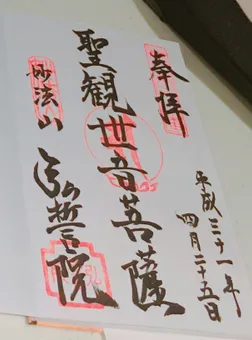 奉拝
平成三十一年
四月二十五日
聖観世音菩薩
妙法山
弘誓院